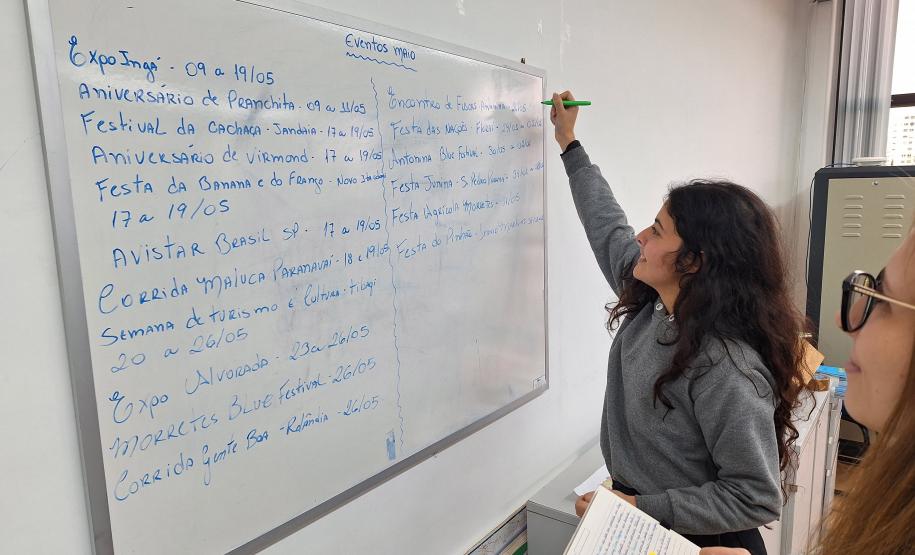 Eventos maio
Expo Ingá - 09 a 19/05
Aniversário de Pranchita - 09 a 11/05
Festival da Cachaça - Jandaia - 17 a 19/05
Aniversário de Virmond - 17 a 19/05
Festa da Banana e do Frango - Novo Itacolomi
17 a 19/05
Avistar Brasil SP - 17 a 19/05
Corrida Maluca Paranavaí - 18 e 19/05
Semana de turismo e Cultura - Tibagi
20 a 26/05
Expo Alvorada - 23 a 26/05
Morretes Blue Festival - 26/05
Corrida Gente Boa - Rolândia - 26/05
Encontro de Fuscas
Festa das Nações - Floraí
Antonina Blue Festival - 30/05 a
Festa Junina - S. Pedro
Festa Agrícola Morretes
Festa do Pinhão